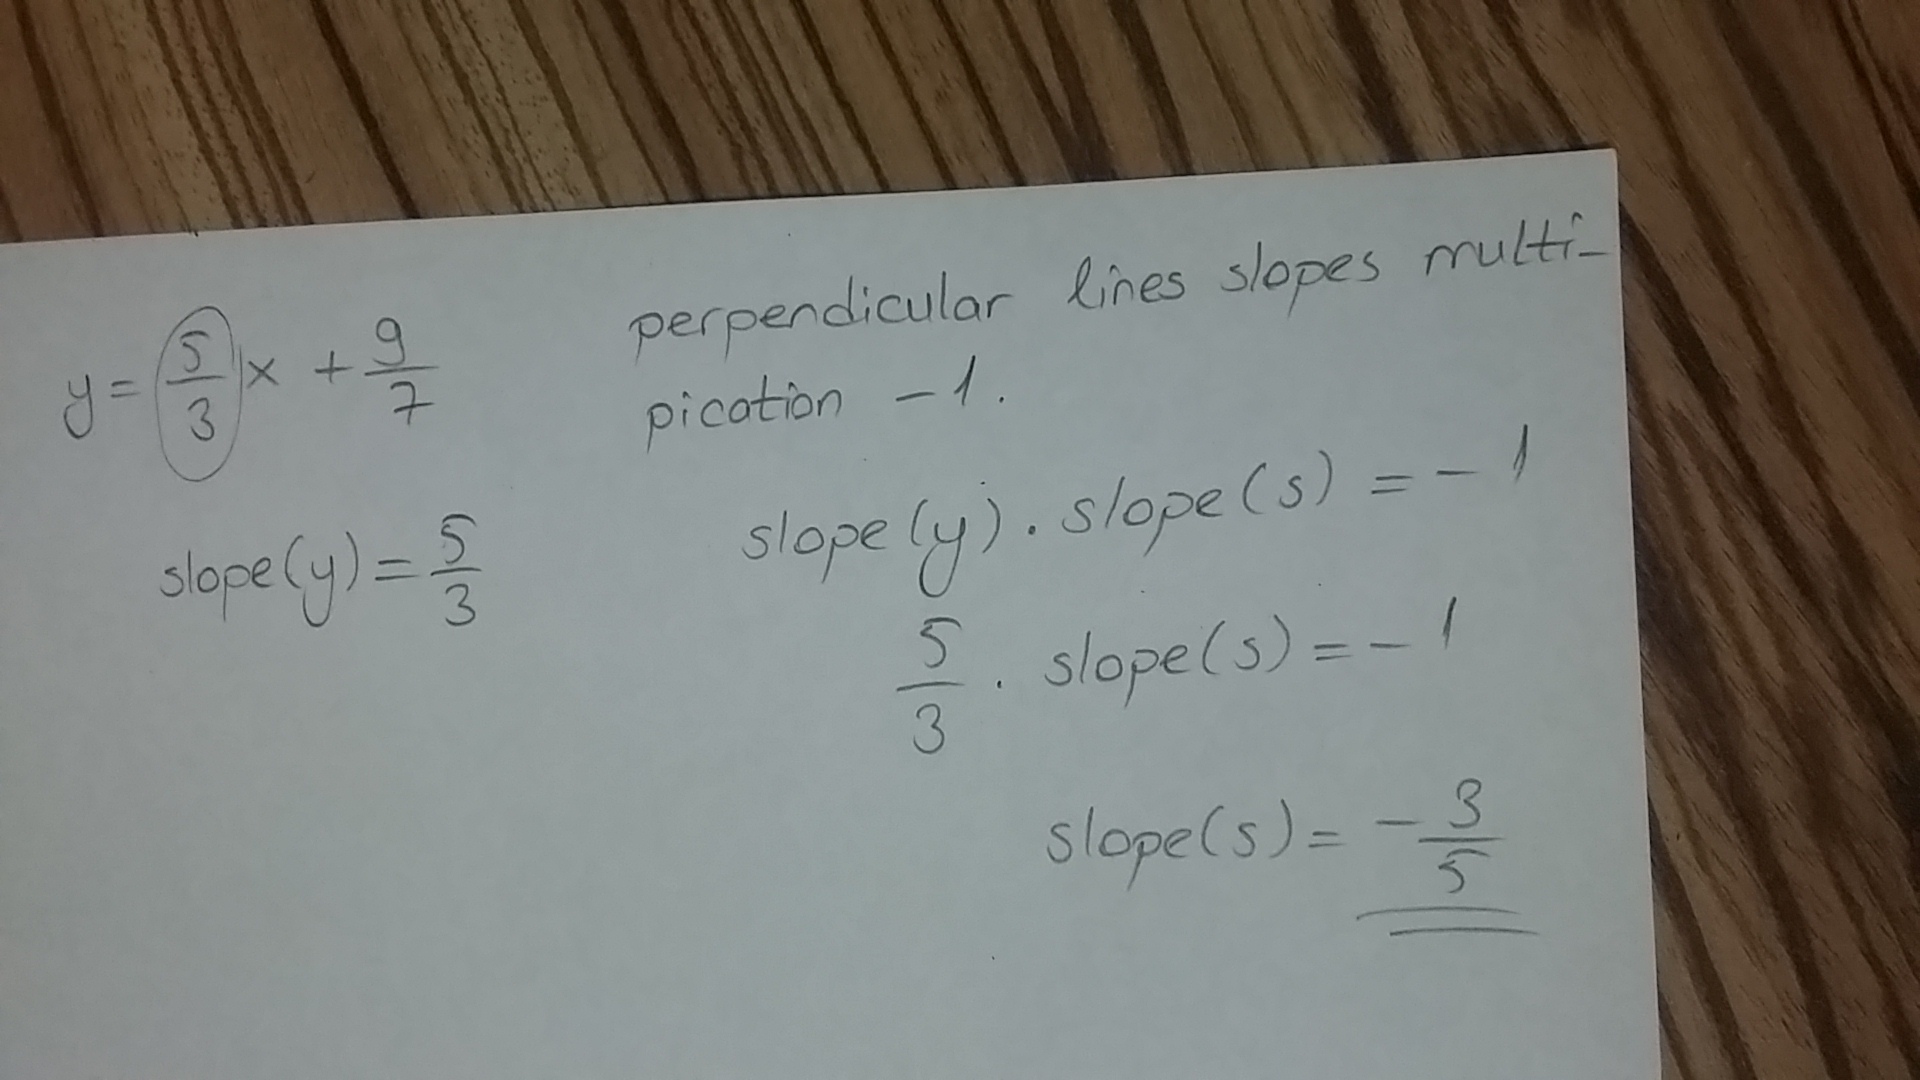 y = 5/3 x + 9/7
slope(y) = 5/3
perpendicular lines slopes multi-
pication -1.
slope(y) . slope(s) = -1
5/3 . slope(s) = -1
slope(s) = -3/5